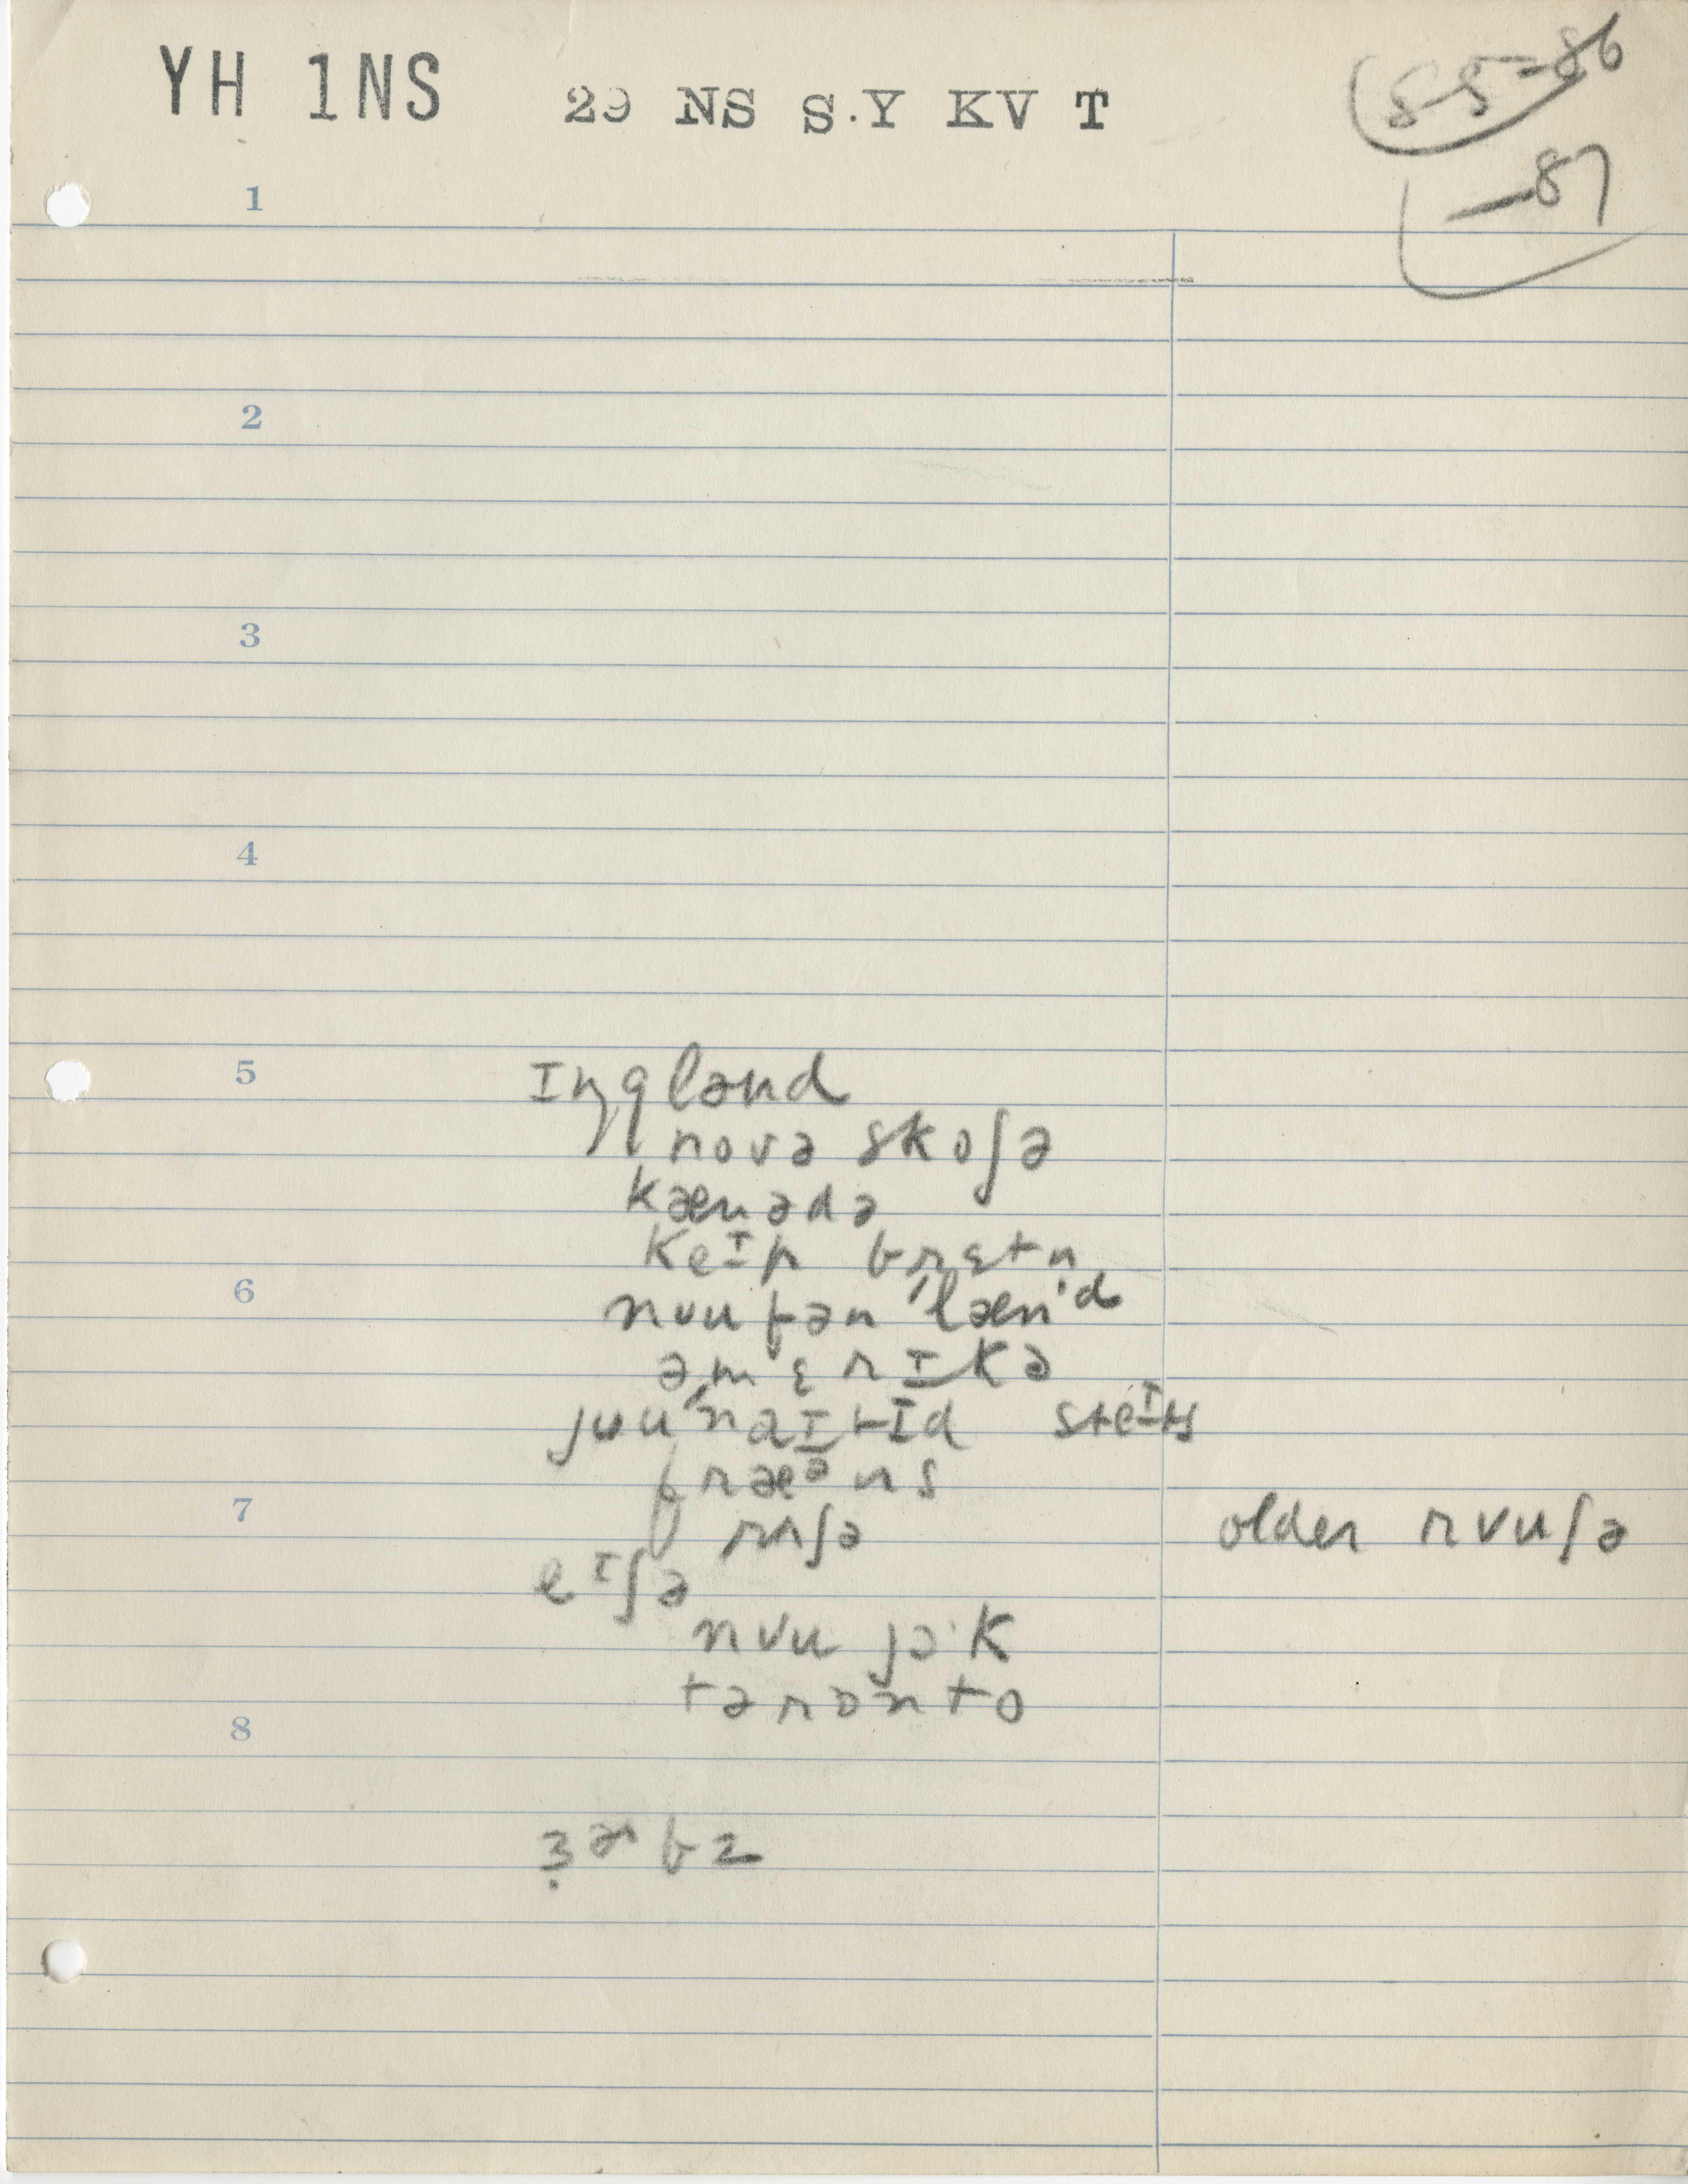 YH 1NS 29 NS S.Y KV T
5-5-86
—87
1
2
3
4
5 ɪŋglənd
novə skoʃə
kænədə
keɪp brɛtn
6 nʊufən'læn'd
əmɛrɪkə
jʊu'naɪtɪd steɪts
fræᵊns
7 rʌʃə older rʊuʃə
eɪʃə
nʊu jɔ·k
tərɒnto
8